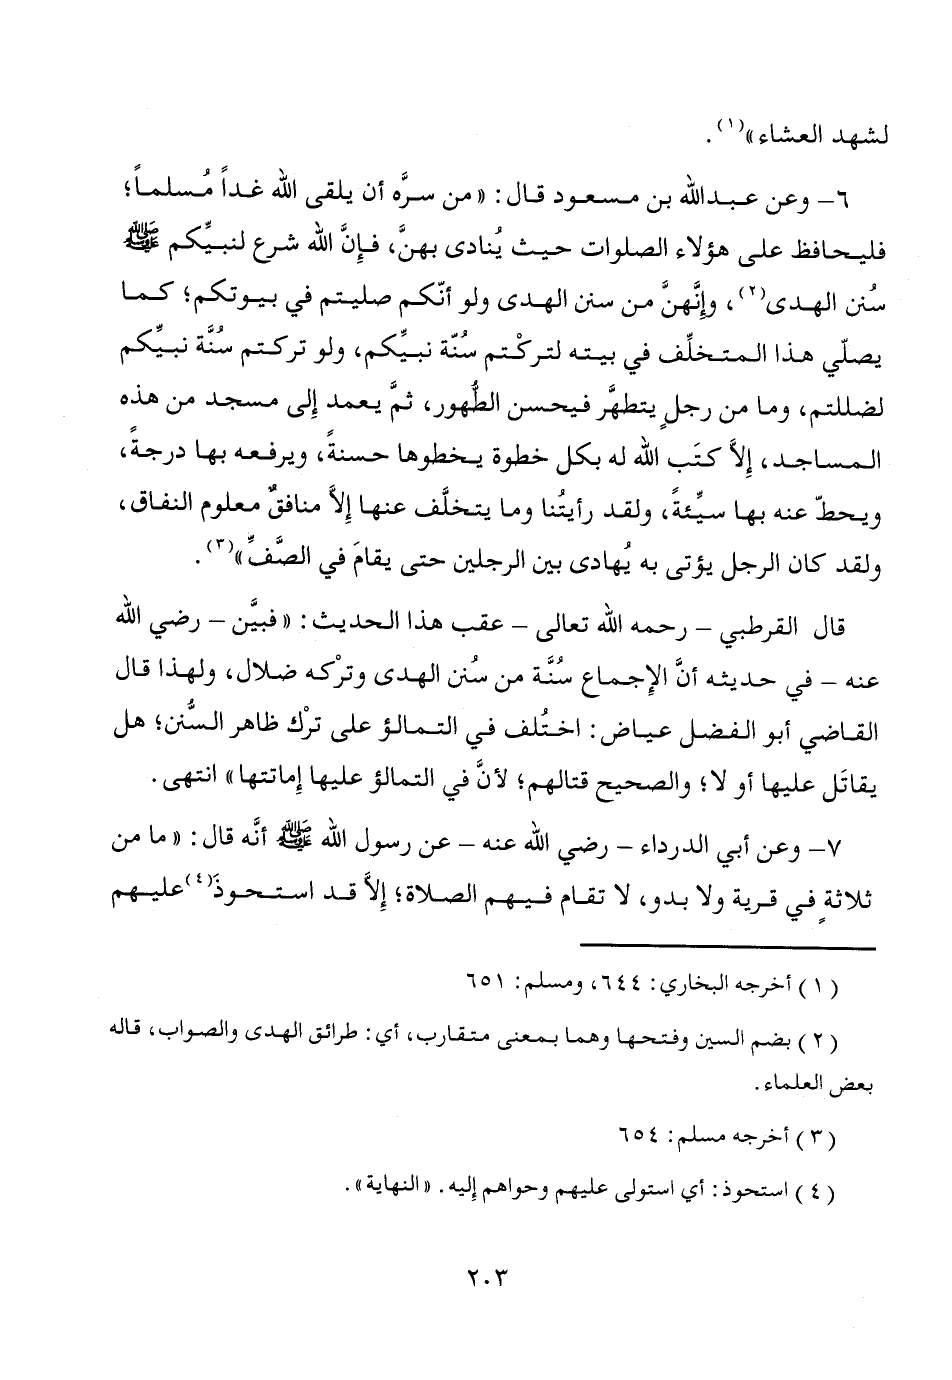 لشهد العشاء»(١).
٦- وعن عبدالله بن مسعود قال: «من سرَّه أن يلقى الله غداً مُسلماً؛
فليحافظ على هؤلاء الصلوات حيث يُنادى بهنَّ، فإنَّ الله شرع لنبيِّكم ﷺ
سُنن الهدى(٢)، وإنَّهنَّ من سنن الهدى ولو أنّكم صليتم في بيوتكم؛ كما
يصلّي هذا المتخلِّف في بيته لتركْتم سُنّة نبيِّكم، ولو تركتم سُنَّة نبيِّكم
لضللتم، وما من رجلٍ يتطهَّر فيحسن الطُّهور، ثمَّ يعمد إلى مسجد من هذه
المساجد، إلاَّ كتَب الله له بكل خطوة يخطوها حسنةً، ويرفعه بها درجةً،
ويحطّ عنه بها سيِّئةً، ولقد رأيتُنا وما يتخلَّف عنها إلاَّ منافقٌ معلوم النفاق،
ولقد كان الرجل يؤتى به يُهادى بين الرجلين حتى يقامَ في الصَّفِّ»(٣).
قال القرطبي - رحمه الله تعالى - عقب هذا الحديث: «فبيَّن - رضي الله
عنه - في حديثه أنَّ الإجماع سُنَّة من سُنن الهدى وتركْه ضلال، ولهذا قال
القاضي أبو الفضل عياض: اختُلف في التمالؤ على ترْك ظاهر السُّنن؛ هل
يقاتَل عليها أو لا؛ والصحيح قتالهم؛ لأنَّ في التمالؤ عليها إماتتها» انتهى.
٧- وعن أبي الدرداء - رضي الله عنه - عن رسول الله ﷺ أنَّه قال: «ما من
ثلاثةٍ في قرية ولا بدو، لا تقام فيهم الصلاة؛ إلاَّ قد استحوذَ(٤) عليهم
(١) أخرجه البخاري: ٦٤٤، ومسلم: ٦٥١
(٢) بضم السين وفتحها وهما بمعنى متقارب، أي: طرائق الهدى والصواب، قاله
بعض العلماء.
(٣) أخرجه مسلم: ٦٥٤
(٤) استحوذ: أي استولى عليهم وحواهم إليه. «النهاية».
٢٠٣